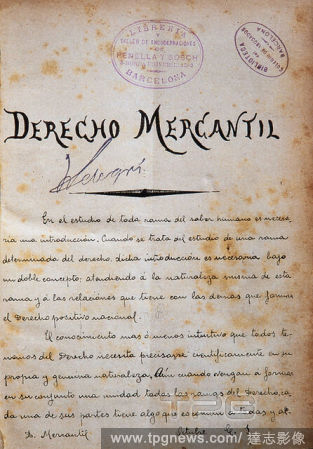 LIBRERIA
Y
TALLER DE ENCUADERNACIONES
DE
PENELLA Y BOSCH
BARCELONA
BIBLIOTECA
BARCELONA
DERECHO MERCANTIL
En el estudio de toda rama del saber humano es necesa-
ria una introducción. Cuando se trata del estudio de una rama
determinada del derecho, dicha introducción es necesaria bajo
un doble concepto: atendiendo á la naturaleza misma de esta
rama y á las relaciones que tiene con las demas que forman
el Derecho positivo nacional.
El conocimiento mas ó menos intuitivo que todos te-
nemos del Derecho necesita precisarse científicamente en su
propia y genuina naturaleza. Aun cuando vengan a formar
en su conjunto una unidad todas las ramas del Derecho, ca-
da una de sus partes tiene algo que es comun a todas y al-
D. Mercantil
www.tpgnews.com/ 達志影像